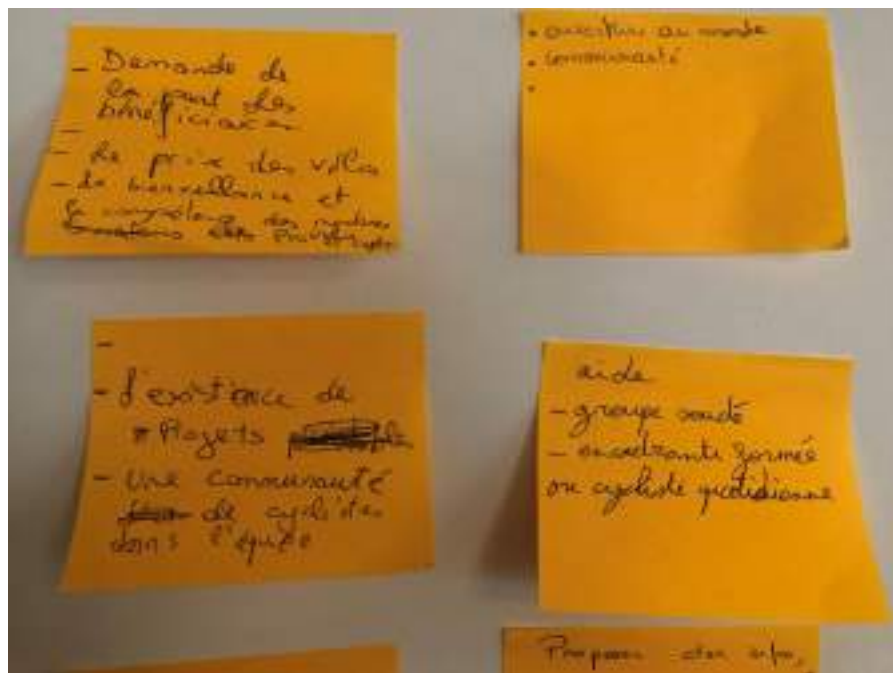 - Demande de
la part des
bénéficiaires
-
- Le prix des vélos
- La bienveillance et
la compétence des
• ouverture au monde
• communauté
•
-
- L'existence de
# Projets
- Une communauté
de cyclistes
dans l'équipe
aide
- groupe soudé
- encadrante formée
ou cycliste quotidienne
Proposer des infos,